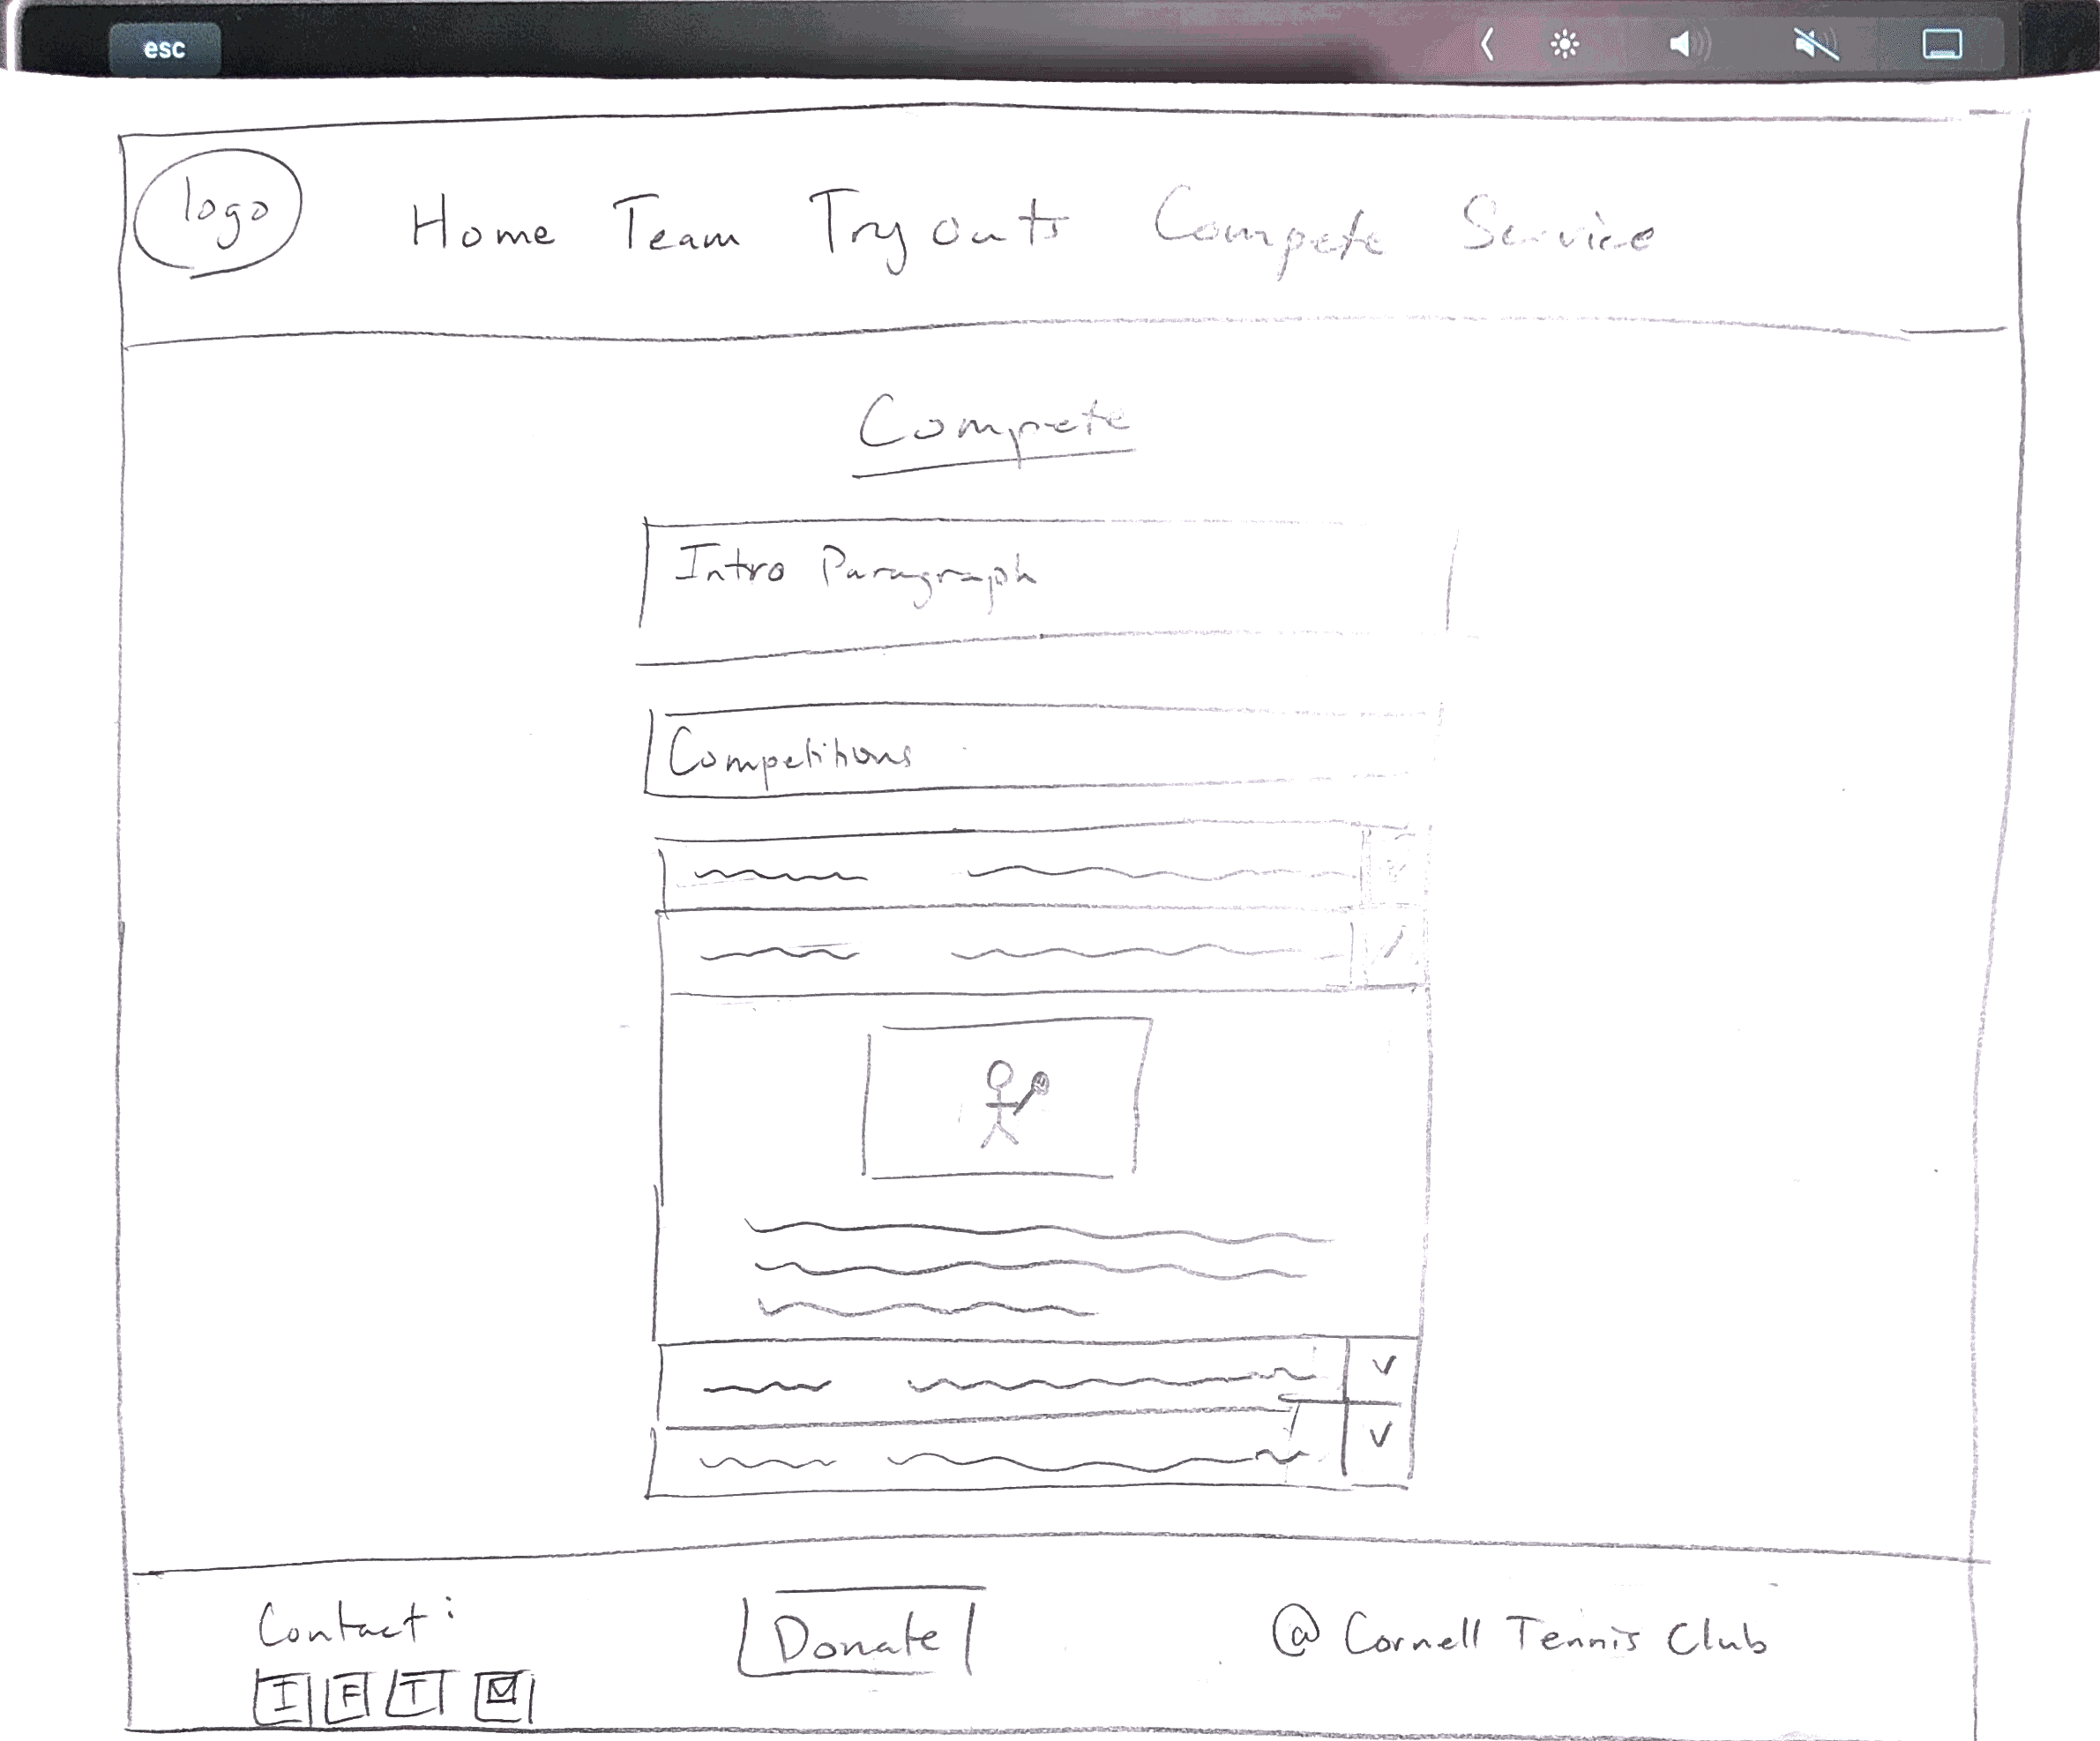 esc
logo Home Team Tryouts Compete Service
Compete
Intro Paragraph
Competitions
Contact: Donate @ Cornell Tennis Club
I F T